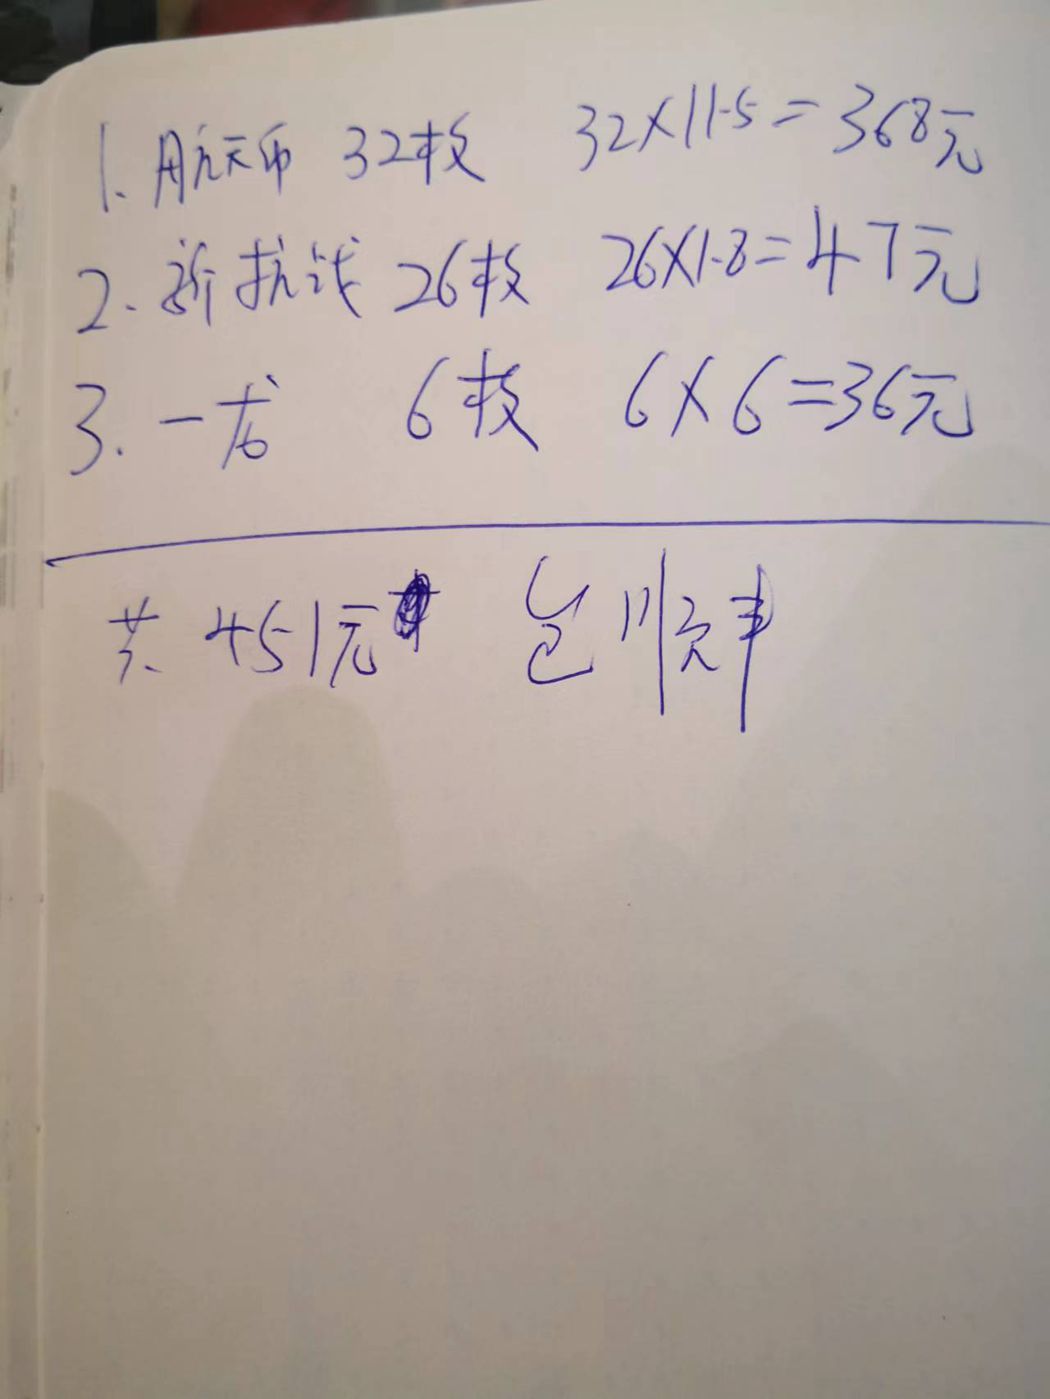 1. 航天币 32枚 32×11.5=368元
2. 新抗战 26枚 26×1.8=47元
3. 一龙 6枚 6×6=36元
共 451元 包顺丰